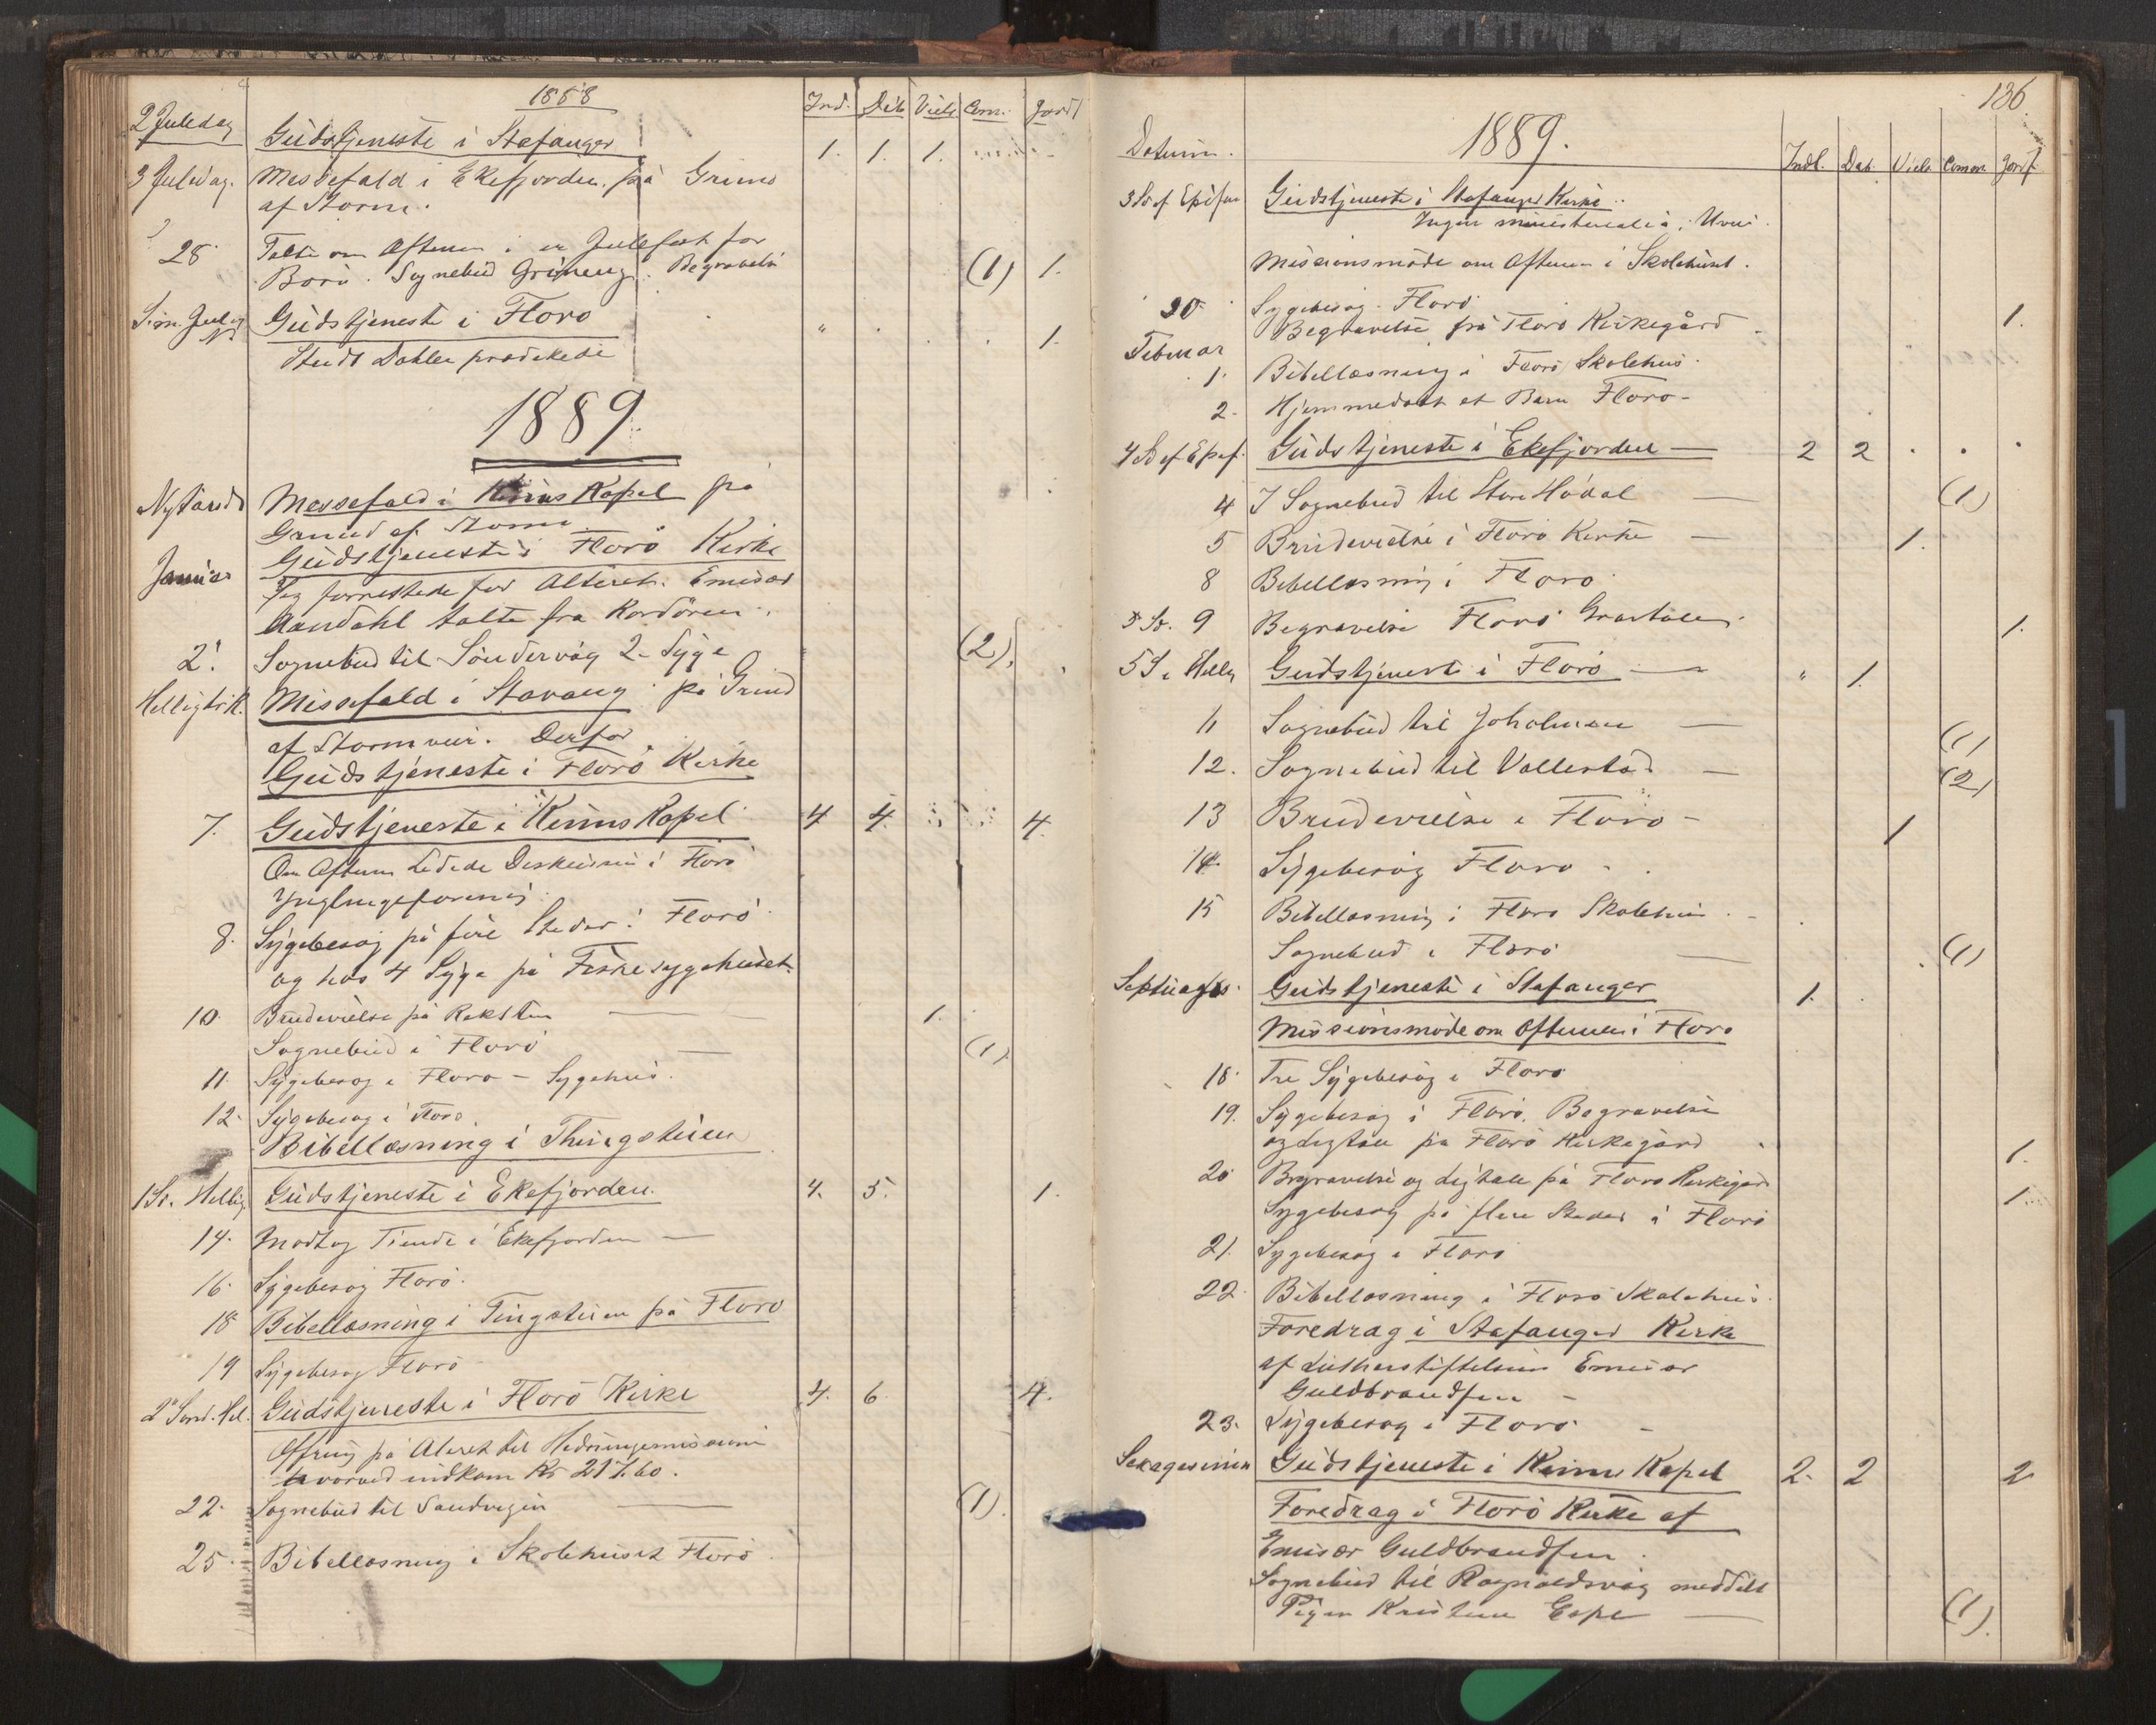 1888 Ind. Dåb Viels Com. Jordf
2 Juledag Gudstjeneste i Stafanger 1. 1. 1.
3 Juledag. Messefald i Ekefjorden på Grund
af Storm.
28 Talte om Aftenen i en Julefest for
Börn. Sognebud Gröneng. Begravelse (1) 1.
S. m. Jul og Gudstjeneste i Florö " 1.
Studt Dahler prædikede
1889
Nytårsd Messefald i Kinns Kapel på
Grund af Storm.
Gudstjeneste i Florö Kirke
Januar Jeg forrettede for Alteret. Emisær
Aandahl talte fra Kordören.
2. Sognebud til Söndervåg 2 Syge (2)
Helligtr.K. Messefald i Stavang på Grund
af Stormveir. Derfor
Gudstjeneste i Florö Kirke
7. Gudstjeneste i Kinns Kapel 4 4. 4.
Om Aftenen ledede Diskussion i Florö
Ynglingeforening
8. Sygebesög på fire Steder i Florö
og hos 4 Syge på Fiskesygehuset.
10. Brudevielse på Reksten — 1.
Sognebud i Florö — (1)
11. Sygebesög i Florö – Sygehus.
12. Sygebesög i Florö
Bibellæsning i Thingstuen
1 S. Hellig Gudstjeneste i Ekefjorden. 4. 5. 1.
14. Modtog Tiende i Ekefjorden —
16. Sygebesög Florö.
18 Bibellæsning i Tingstuen på Florö
19 Sygebesög Florö
2 Sönd. Hel. Gudstjeneste i Florö Kirke 4. 6 4.
Offring på Alteret til Hedningemissionen
hvorved indkom Kr 217.60.
22. Sognebud til Sandvigen — (1).
25. Bibellæsning i Skolehuset Florö
136
Datum. 1889. Indl. Dåb Viels Comm. Jordf
3 S. ef Epifan Gudstjeneste i Stafanger Kirke
Ingen ministerialia; Uveir.
Missionsmöde om Aftenen i Skolehuset.
30 Sygebesög. Florö
Begravelse på Florö Kirkegård 1.
Februar
1. Bibellæsning i Florö Skolehus
2. Hjemmedöbt et Barn Florö –
4 S ef Epif. Gudstjeneste i Ekefjorden — 2 2 . . .
4 I Sognebud til Store Hödal — (1)
5 Brudevielse i Florö Kirke — 1.
8 Bibellæsning i Florö
9 Begravelse Florö Gravtale 1.
5 S. Hellig Gudstjeneste i Florö — " 1.
11 Sognebud til Joholmen — (1)
12. Sognebud til Vallestad — (2)
13 Brudevielse i Florö – 1
14 Sygebesög Florö
15 Bibellæsning i Florö Skolehus
Sognebud i Florö — (1)
Septuages. Gudstjeneste i Stafanger 1.
Missionsmöde om Aftenen i Florö
18. Tre Sygebesög i Florö
19. Sygebesög i Florö. Begravelse
og Ligtale på Florö Kirkegård 1.
20 Begravelse og Ligtale på Florö Kirkegård 1.
Sygebesög på flere Steder i Florö
21. Sygebesög i Florö
22. Bibellæsning i Florö Skolehus.
Foredrag i Stafanger Kirke
af Lutherstiftelsens Emisær
Guldbrandsen –
23. Sygebesög i Florö –
Sexagesima Gudstjeneste i Kinns Kapel 2. 2 2
Foredrag i Florö Kirke af
Emisær Guldbrandsen.
Sognebud til Rognaldsvåg meddelt
Pigen Kristine Espe — (1).